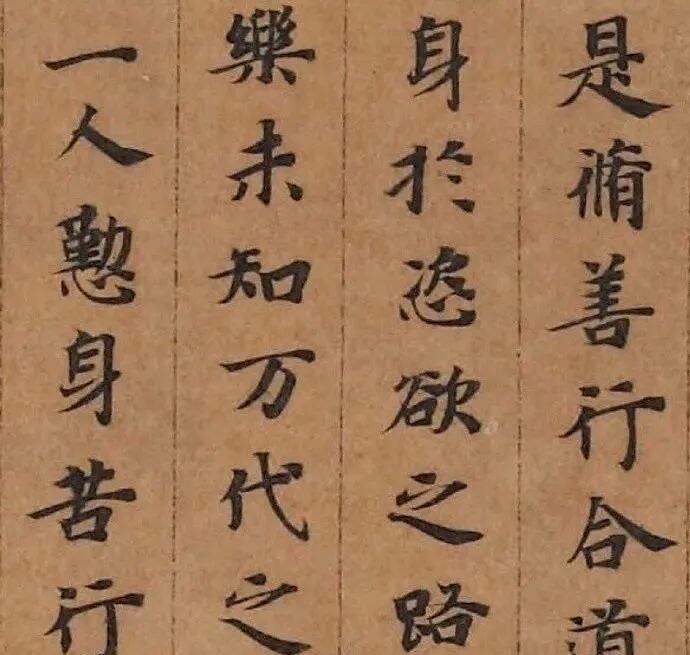 是脩善行合道
身於恣欲之路
樂未知万代之
一人懃身苦行